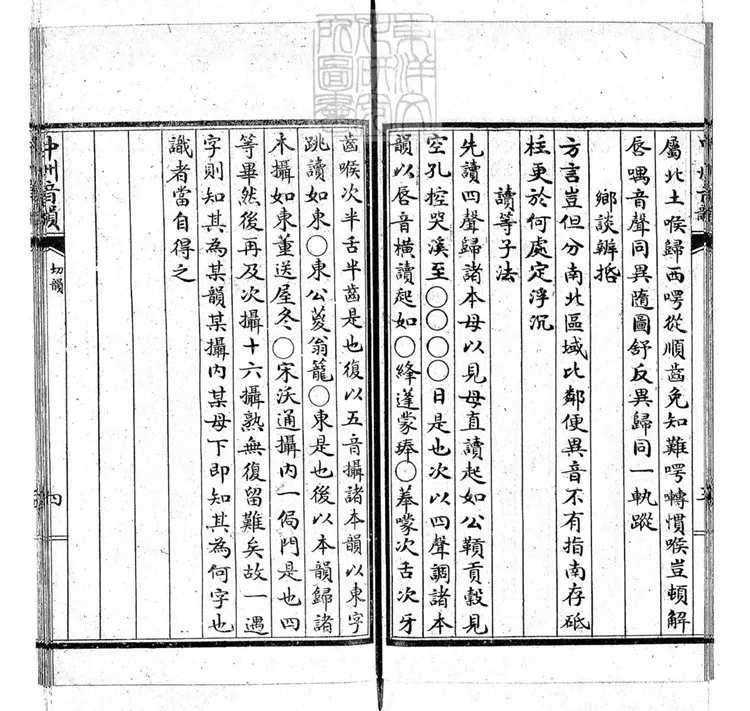 屬北土喉歸西㗁從順齒免知難㗁轉慣喉豈頓解
唇喁音聲同異隨圖舒反異歸同一軌蹤
鄉談辨抵
方言豈但分南北區域比鄰便異音不有指南存砥
柱更於何處定浮沉
讀等子法
先讀四聲歸諸本母以見母直讀起如公顆貢穀見
空孔控哭溪至〇〇〇〇日是也次以四聲調諸本
韻以唇音橫讀起如〇綘蓬蒙琫〇菶蠓次舌次牙
齒喉次半舌半齒是也復以五音攝諸本韻以東字
跳讀如東〇東公蓌翁籠〇東是也後以本韻歸諸
本攝如東董送屋冬〇宋沃通攝內一侷門是也四
等畢然後再及次攝十六攝熟無復留難矣故一遇
字則知其為某韻某攝內某母下即知其為何字也
識者當自得之
中州音韻
切韻
四